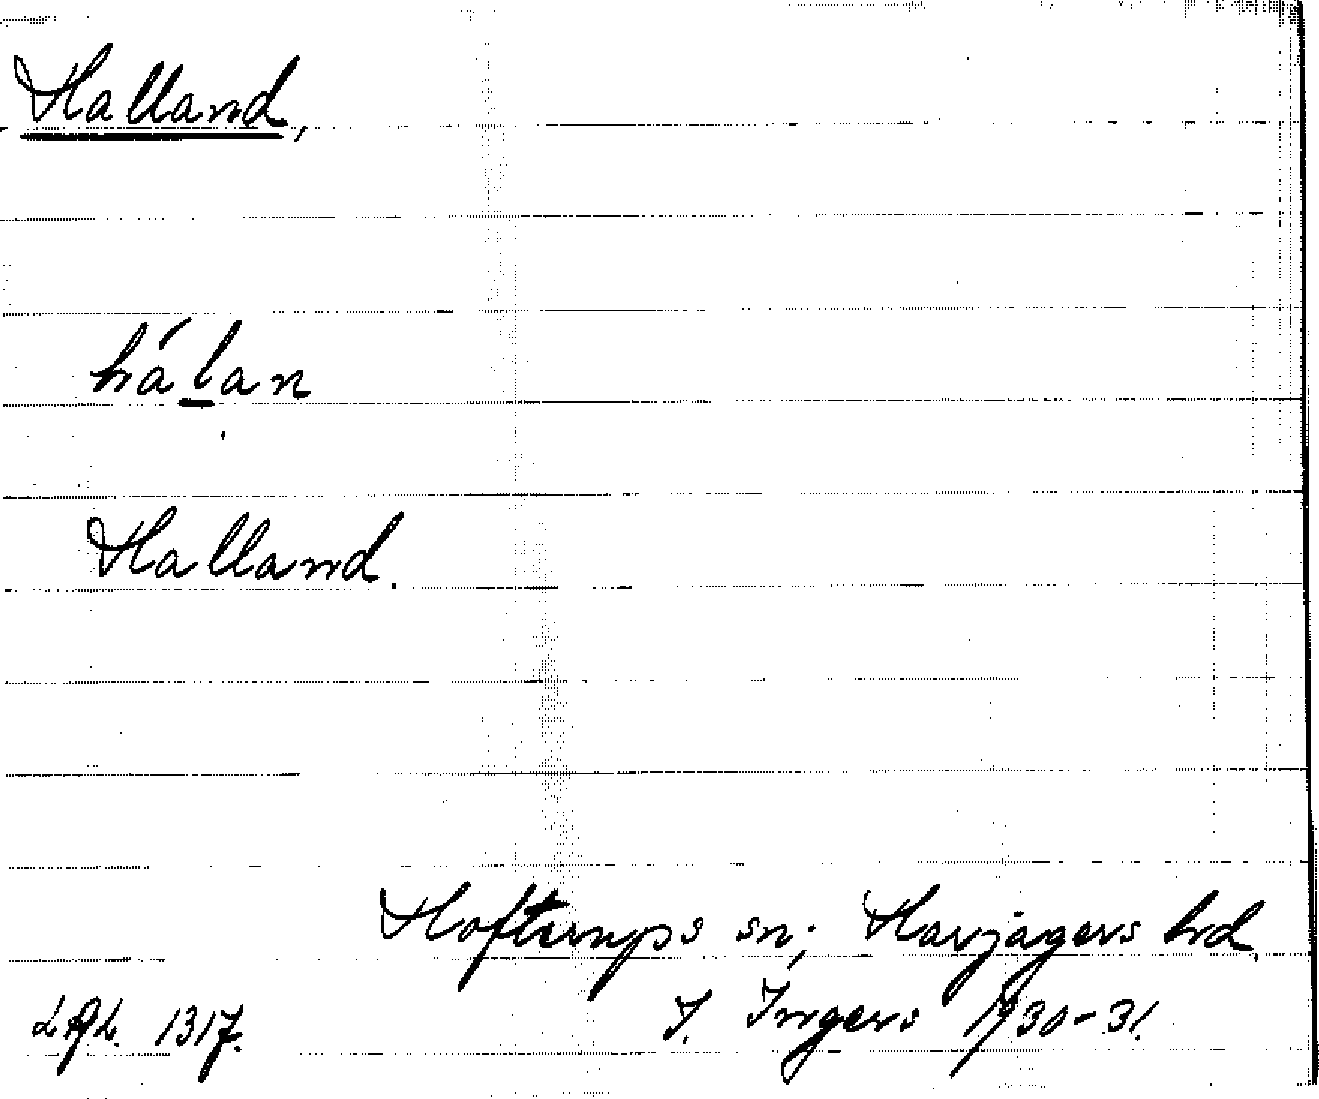 Halland,
hálan
Halland.
Hofterups sn; Harjagers hd,
I. Ingers 1930-31.
LAL. 1317.